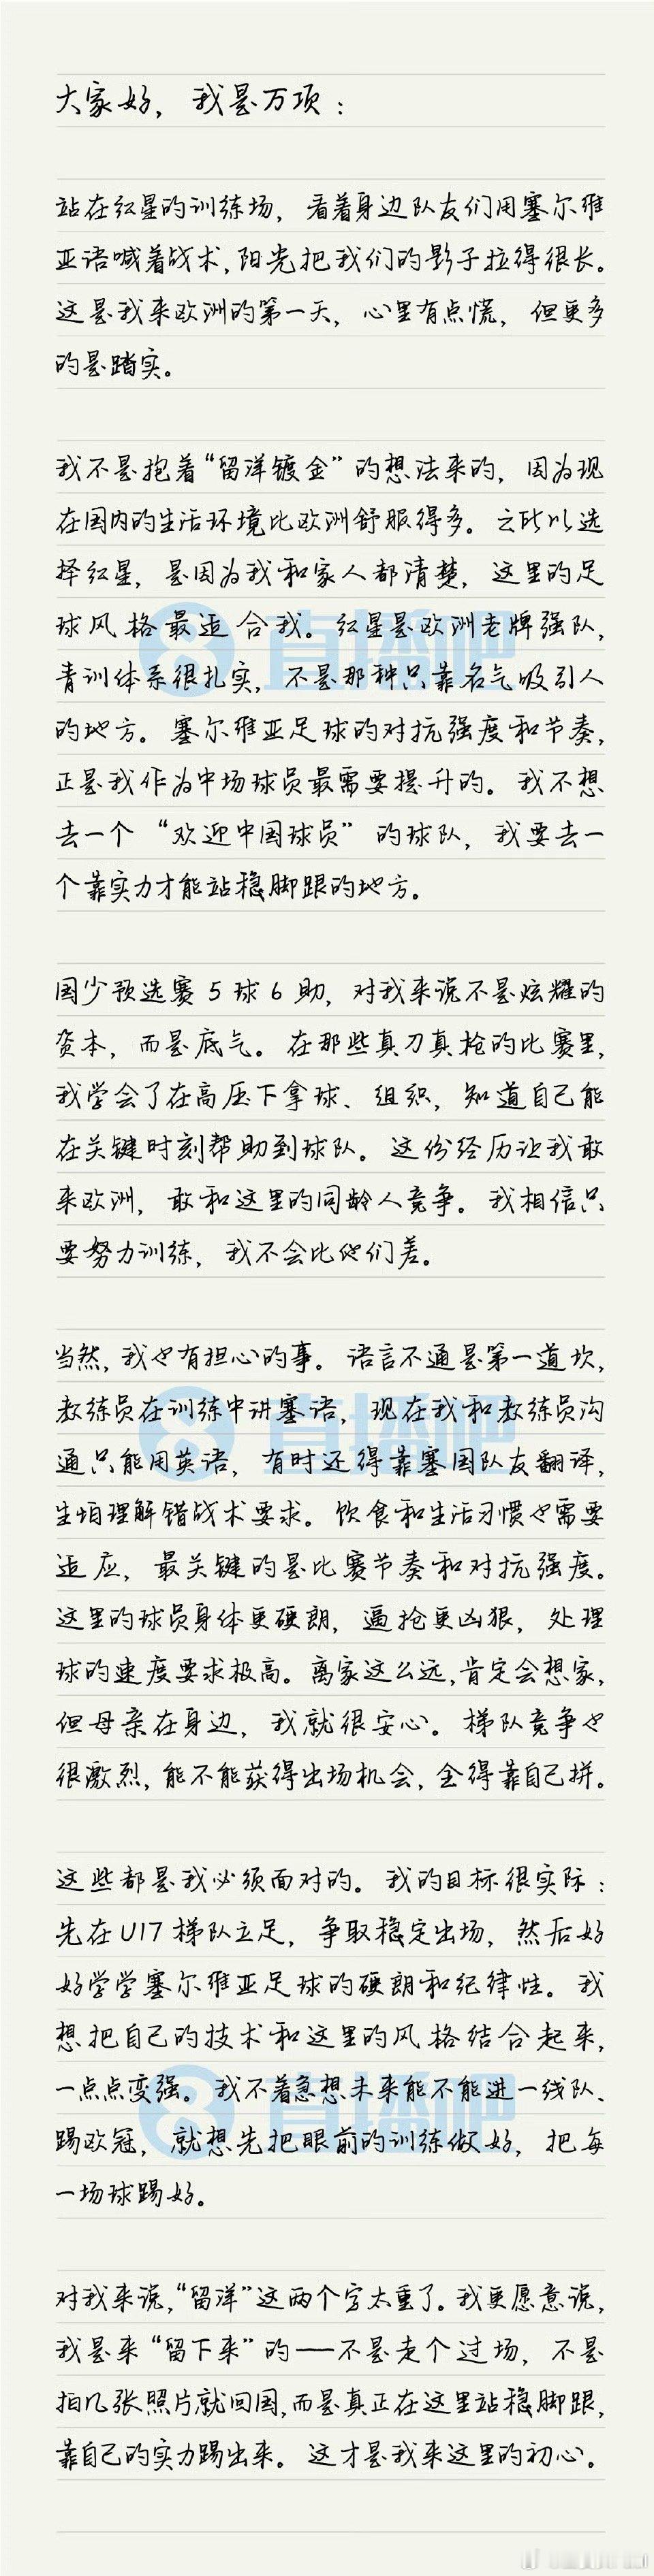 大家好，我是万项：
站在红星的训练场，看着身边队友们用塞尔维
亚语喊着战术，阳光把我们的影子拉得很长。
这是我来欧洲的第一天，心里有点慌，但更多
的是踏实。
我不是抱着“留洋镀金”的想法来的，因为现
在国内的生活环境比欧洲舒服得多。之所以选
择红星，是因为我和家人都清楚，这里的足
球风格最适合我。红星是欧洲老牌强队，
青训体系很扎实，不是那种只靠名气吸引人
的地方。塞尔维亚足球的对抗强度和节奏，
正是我作为中场球员最需要提升的。我不想
去一个“欢迎中国球员”的球队，我要去一
个靠实力才能站稳脚跟的地方。
国少预选赛5球6助，对我来说不是炫耀的
资本，而是底气。在那些真刀真枪的比赛里，
我学会了在高压下拿球、组织，知道自己能
在关键时刻帮助到球队。这份经历让我敢
来欧洲，敢和这里的同龄人竞争。我相信只
要努力训练，我不会比他们差。
当然，我也有担心的事。语言不通是第一道坎，
教练员在训练中讲塞语，现在我和教练员沟
通只能用英语，有时还得靠塞国队友翻译，
生怕理解错战术要求。饮食和生活习惯也需要
适应，最关键的是比赛节奏和对抗强度。
这里的球员身体更硬朗，逼抢更凶狠，处理
球的速度要求极高。离家这么远，肯定会想家，
但母亲在身边，我就很安心。梯队竞争也
很激烈，能不能获得出场机会，全得靠自己拼。
这些都是我必须面对的。我的目标很实际：
先在U17梯队立足，争取稳定出场，然后好
好学学塞尔维亚足球的硬朗和纪律性。我
想把自己的技术和这里的风格结合起来，
一点点变强。我不着急想未来能不能进一线队、
踢欧冠，就想先把眼前的训练做好，把每
一场球踢好。
对我来说，“留洋”这两个字太重了。我更愿意说，
我是来“留下来”的——不是走个过场，不是
拍几张照片就回国，而是真正在这里站稳脚跟，
靠自己的实力踢出来。这才是我来这里的初心。
直播吧
直播吧
直播吧